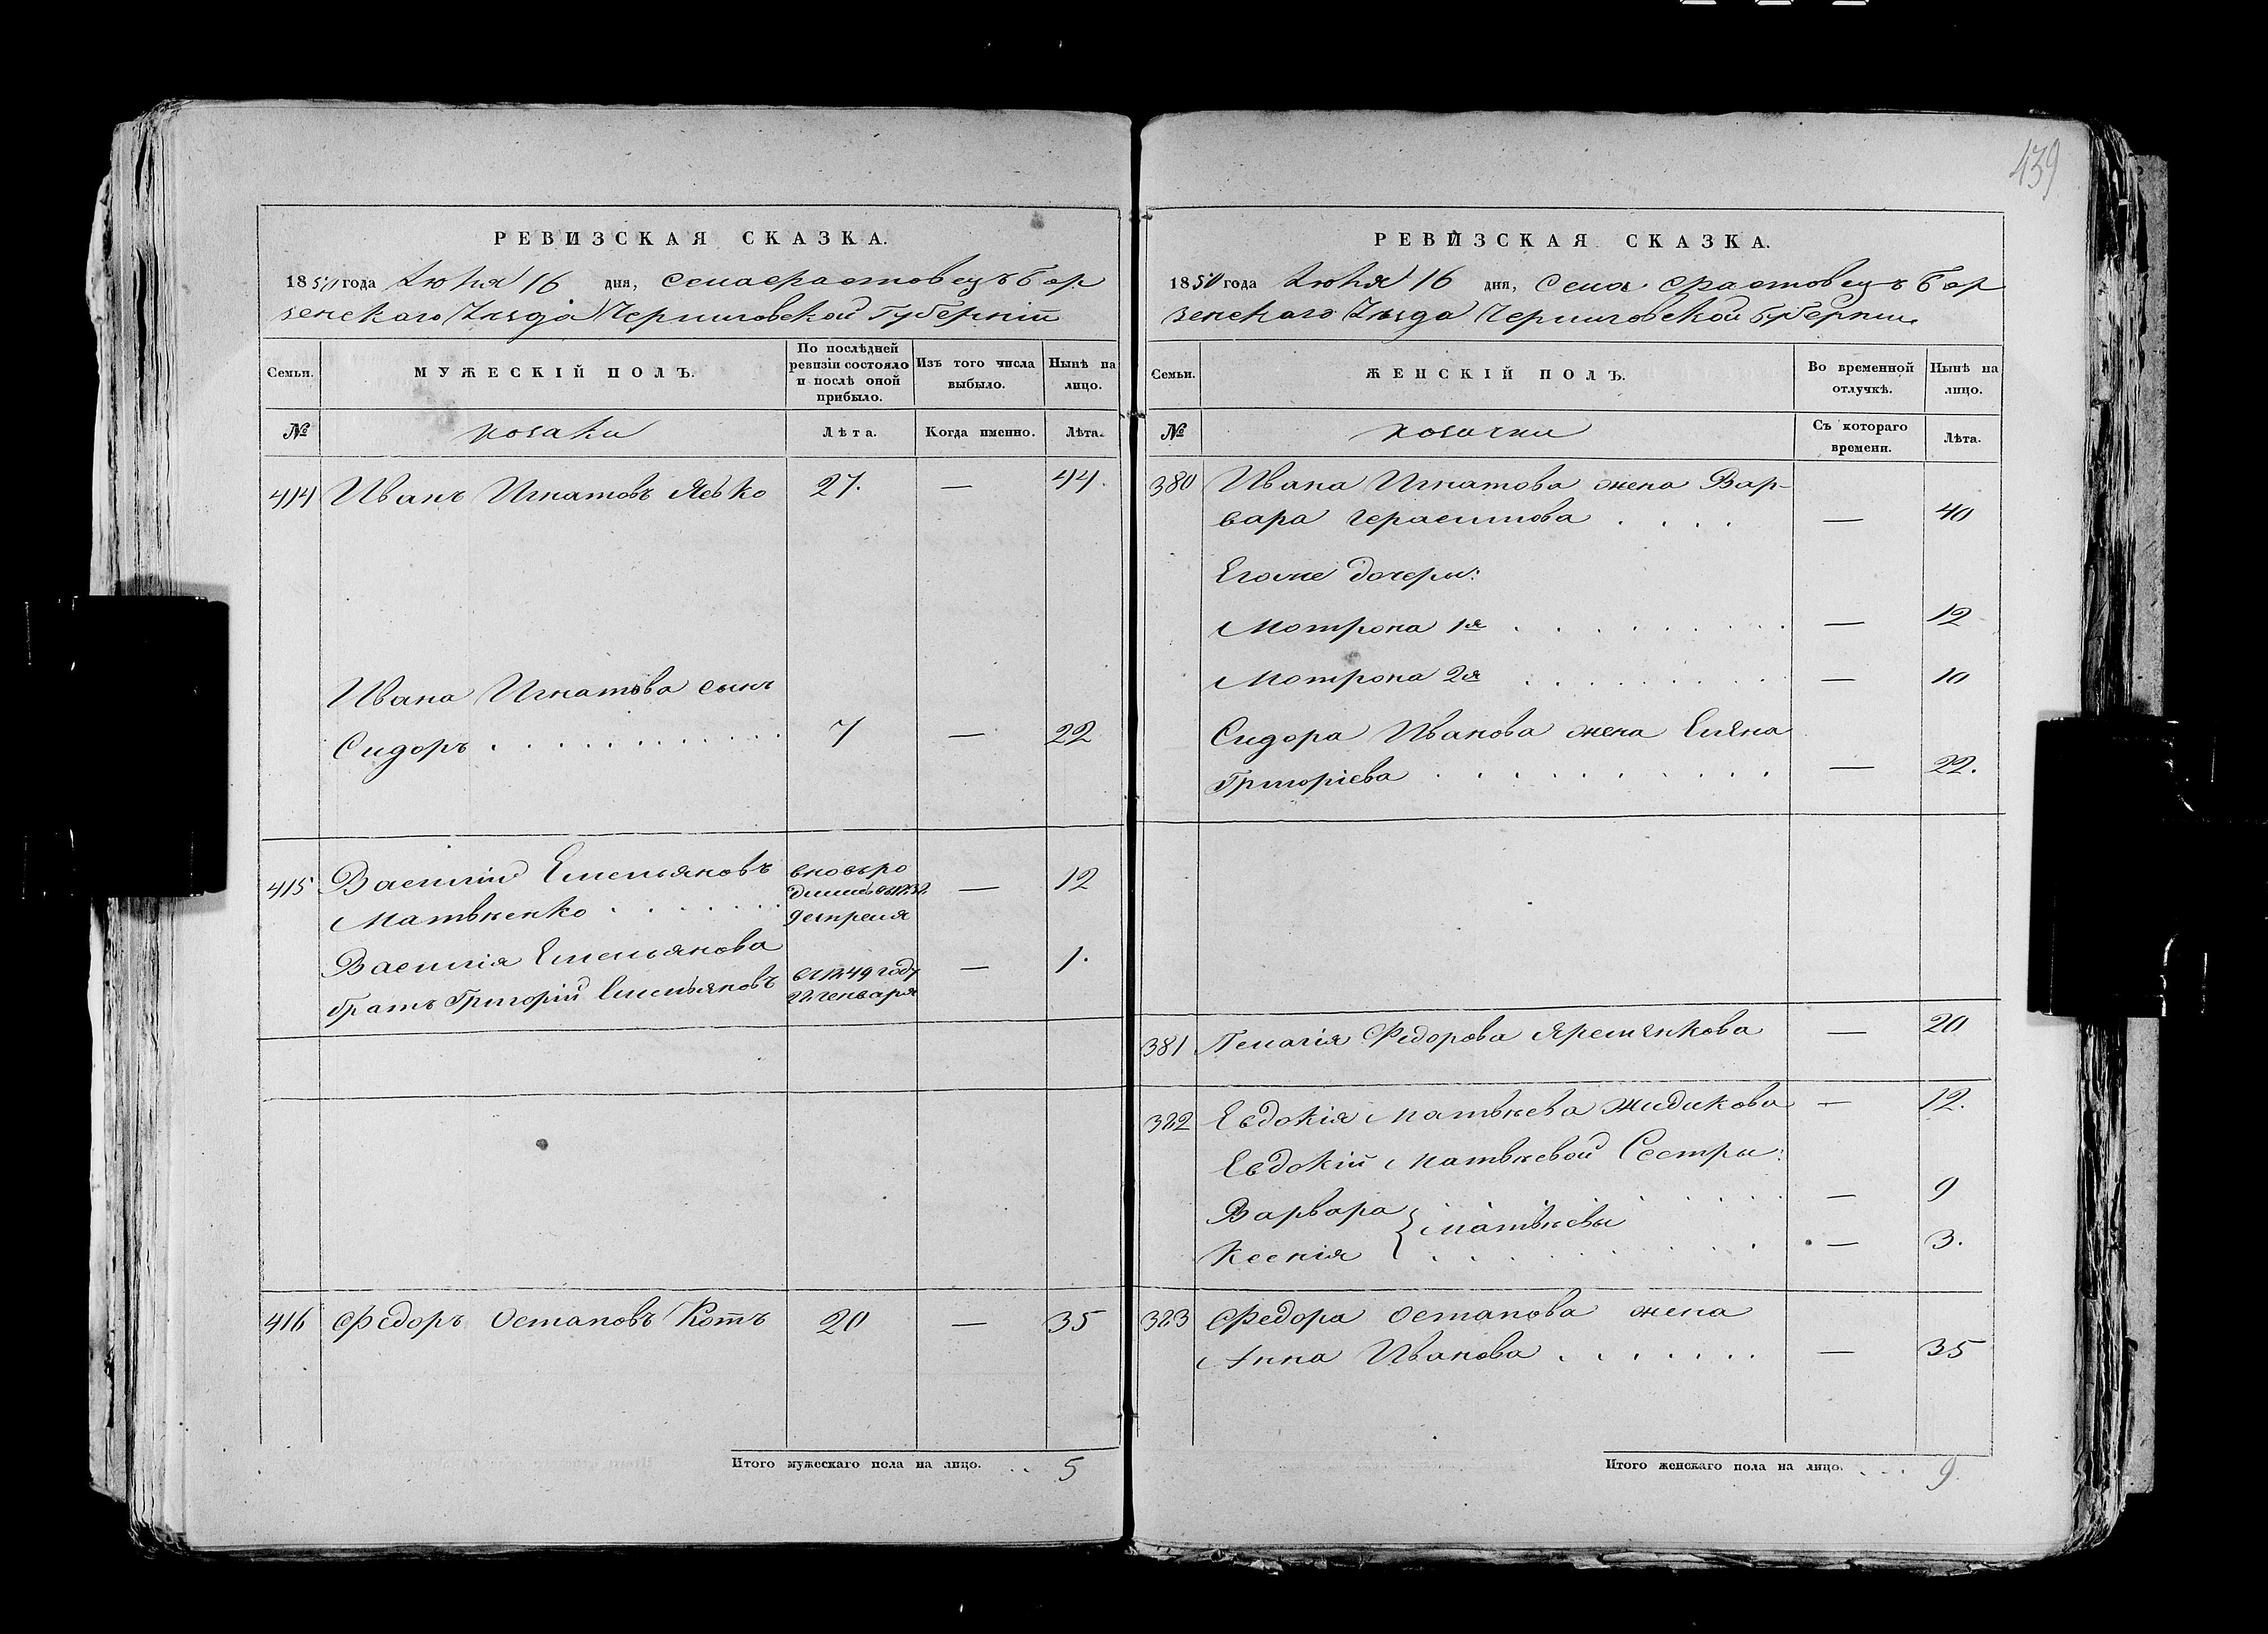 439
РЕВИЗСКАЯ СКАЗКА.
1850 года Іюня 16 дня, Села Фастовецъ Бор
зенскаго Уѣзда Черниговской Губерніи
Семьи.
МУЖЕСКІЙ ПОЛЪ.
По послѣдней ревизіи состояло и послѣ оной прибыло.
Изъ того числа выбыло.
Нынѣ на лицо.
№
козаки
Лѣта.
Когда именно.
Лѣта.
414 Иванъ Игнатовъ 27. — 44.
Ивана Игнатова сынъ
Сидоръ . . . . . . . . . . . 7 — 22
415 Василій Емельяновъ вновь ро
Матвѣенко . . . . . . — 12
Василія Емельянова
братъ Григорій Емельяновъ 1849 году — 1.
генваря
416 Федоръ Остаповъ Котъ 20 — 35
Итого мужескаго пола на лицо. . . 5
РЕВИЗСКАЯ СКАЗКА.
1850 года Іюня 16 дня, Села Фастовецъ Бор
зенскаго Уѣзда Черниговской Губерніи
Семьи.
ЖЕНСКІЙ ПОЛЪ.
Во временной отлучкѣ.
Нынѣ на лицо.
№
козачки
Съ котораго времени.
Лѣта.
380 Ивана Игнатова жена Вар-
вара Герасимова . . . . — 40
Егоже дочери:
Мотрона 1я . . . . . . . . — 12
Мотрона 2я . . . . . . . . — 10
Сидора Иванова жена Елена
Григоріева . . . . . . . . . . — 22.
381 Пелагія Федорова — 20
382 Евдокія Матвѣева Жидикова — 12.
Евдокіи Матвѣевой Сестры:
Варвара . . . . . . — 9
Матвѣевы
Ксенія . . . . . . . . . — 3.
383 Федора Остапова жена
Анна Иванова . . . . . . . — 35
Итого женскаго пола на лицо. . . . 9